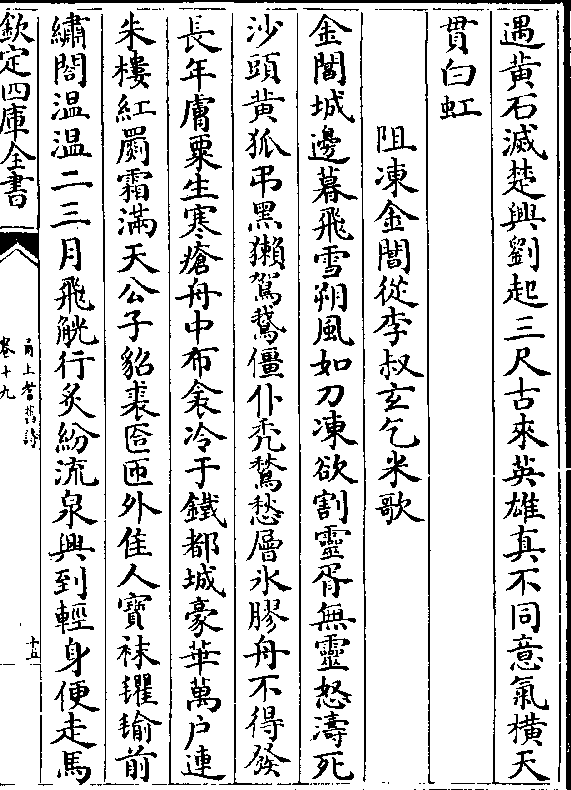 遇黄石滅楚興劉起三尺古來英雄真不同意氣横天
貫白虹
阻凍金閶從李叔玄乞米歌
金閶城邊暮飛雪朔風如刀凍欲割靈胥無靈怒濤死
沙頭黄狐弔黑獺駕鵞僵仆禿鶖愁層氷膠舟不得發
長年膚粟生寒瘡舟中布衾冷于鐵都城豪華萬户連
朱樓紅罽霜滿天公子貂裘匼匝外佳人寶襪㻻瑜前
繡閤温温二三月飛觥行炙紛流泉興到輕身便走馬
欽定四庫全書
甬上耆舊詩
卷十九
十五